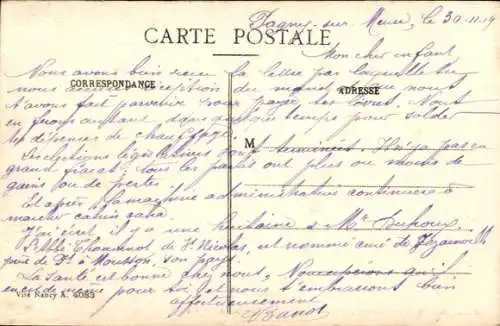 Pagny-sur-Meuse, le 30-11-19
CARTE POSTALE
Mon cher enfant
Nous avons bien reçu la lettre par laquelle tu
nous réception du mandat que nous
CORRESPONDANCE
ADRESSE
t'avons fait parvenir pour payer tes livres. Nous
en ferons autant dans quelque temps pour solder
tes dépenses de chauffage.
M
Les élections législatives sont terminées. Il n'y a pas eu
grand fracas: tous les partis ont plus ou moins de
gains ou de pertes.
Et après la machine administrative continuera à
marcher cahin caha.
J'ai écrit il y a une huitaine à Mr Dufroux.
L'Abbé Chomnot de St Nicolas, est nommé curé de Jezainville
près de Pt à Mousson, son pays.
La santé est bonne chez nous. Nous espérons qu'il
en est de même pour toi et nous t'embrassons bien
Vve Nancy A. 4083
affectueusement